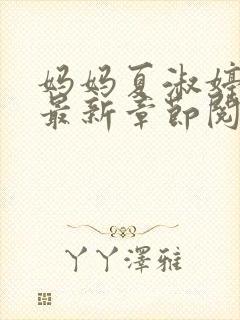 妈妈夏淑婷
最新章节阅
丫丫澤雅